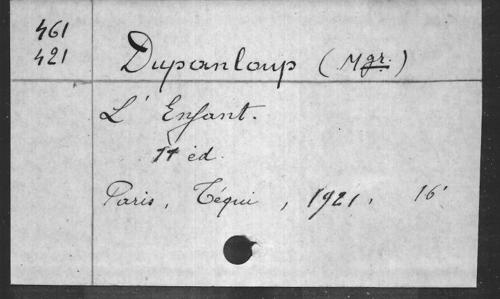 461
421
Dupanloup (Mgr.)
L'Enfant.
éd.
Paris, Téqui, 1921, 16°